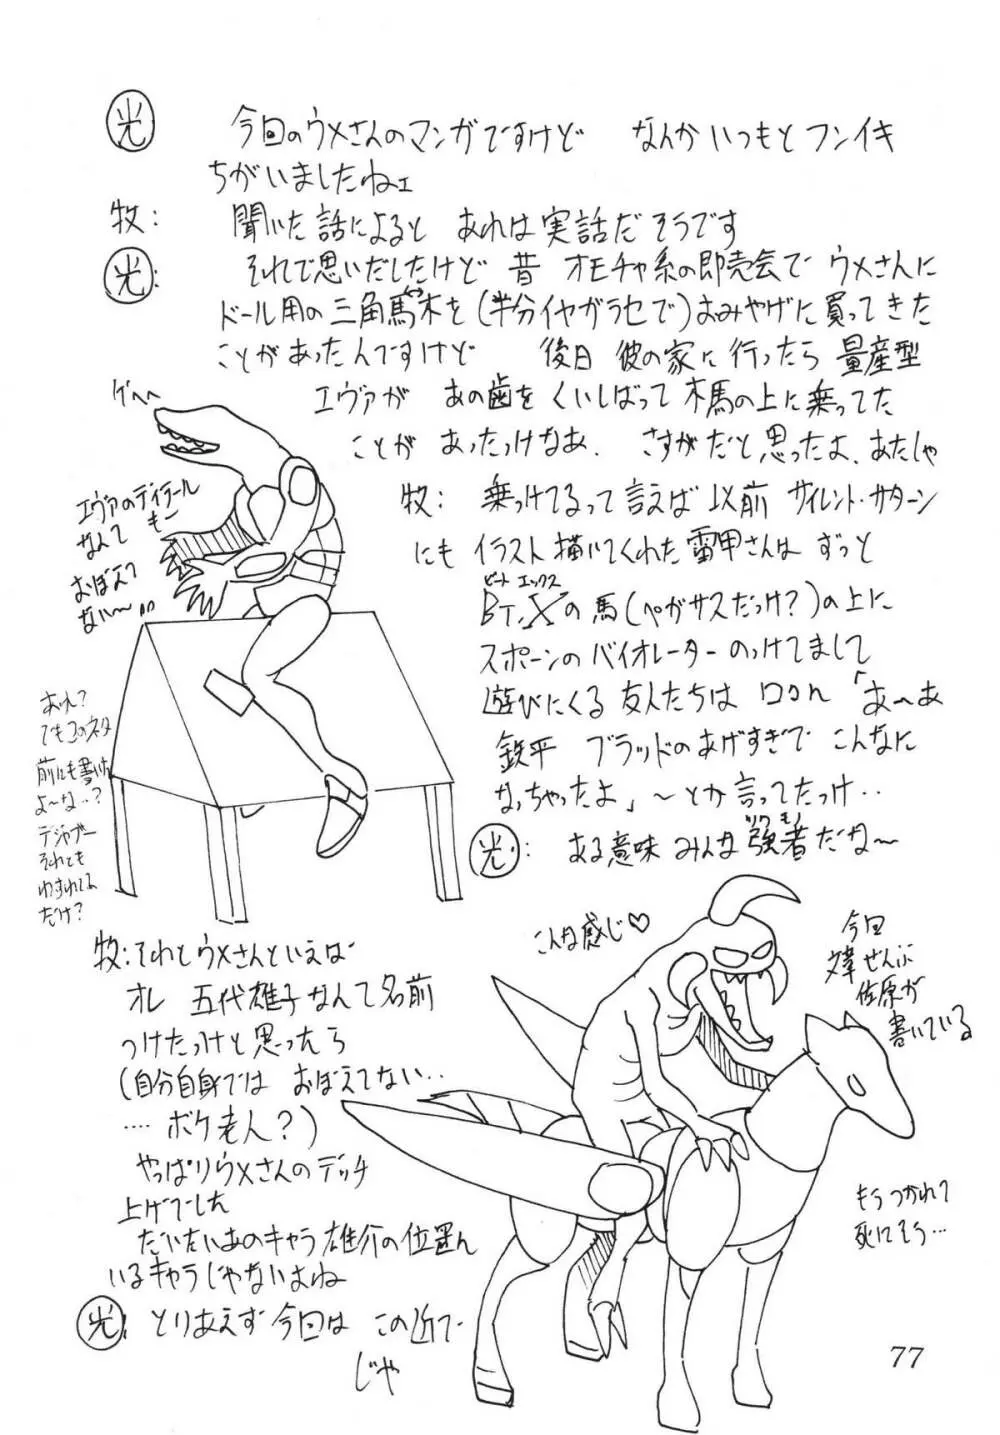 光 今回のウメさんのマンガですけど なんかいつもとフンイキ
ちがいましたねェ
牧: 聞いた話によると あれは実話だそうです
光: それで思いだしたけど 昔 オモチャ系の即売会で ウメさんに
ドール用の三角馬木を(半分イヤガラセで)おみやげに買ってきた
ことがあったんですけど 後日 彼の家に行ったら 量産型
エヴァが あの歯を くいしばって 木馬の上に乗ってた
ことが あったっけなあ. さすがだと思ったよ、あたしゃ
ゲヘヘ
エヴァのディテール
なんて もー
おぼえて
ない〜
あれ?
でもこのネタ
前にも書いた
よ〜な‥?
デジャブー
それとも
わすれてる
だけ?
牧: 乗っけてるって言えば 以前 サイレント・サターン
にも イラスト描いてくれた雷甲さんは ずっと
ビート エックス
BT,Xの馬(ペガサスだっけ?)の上に
スポーンの バイオレーター のっけてまして
遊びにくる 友人たちは 口々に「あ〜あ
鉄平 ブラッドのあげすぎで こんなに
なっちゃったよ」〜とか言ってたっけ‥
光: ある意味 みんな強者だな〜
ツワモノ
こんな感じ♡
今回
文章ぜんぶ
佐原が
書いている
もうつかれて
死にそう…
牧: それとウメさんといえば
オレ 五代雄子なんて名前
つけたっけと思ったら
(自分自身では おぼえてない‥
…. ボケ老人?)
やっぱりウメさんのデッチ
上げでした
だいたいあのキャラ雄介の位置ん
いるキャラじゃないよね
光: とりあえず今回は この辺で
じゃ
77